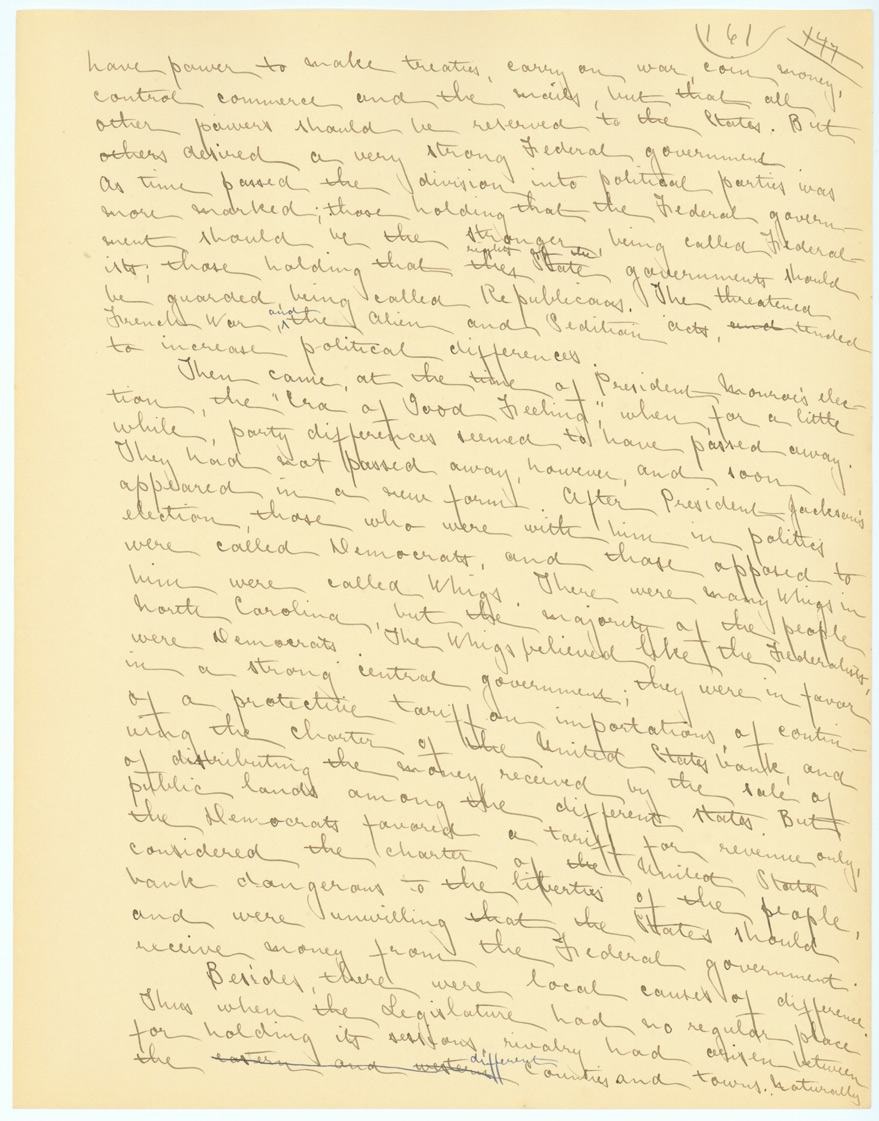 161 147
have power to make treaties, carry on war, coin money,
control commerce and the mails, but that all
other powers should be reserved to the States. But
others desired a very strong Federal government
As time passed the division into political parties was
more marked; those holding that the Federal govern-
ment should be the stronger, being called Federal-
ists; those holding that the rights of the State governments should
be guarded, being called Republicans. The threatened
French War, and the Alien and Sedition acts, and tended
to increase political differences.
Then came, at the time of President Monroe's elec-
tion, the "Era of Good Feeling", when, for a little
while, party differences seemed to have passed away.
They had not passed away, however, and soon
appeared in a new form. After President Jackson's
election, those who were with him in politics
were called Democrats, and those opposed to
him were called Whigs. There were many Whigs in
North Carolina, but the majority of the people
were Democrats. The Whigs believed like the Federalists,
in a strong central government; they were in favor
of a protective tariff on importations, of contin-
uing the charter of the United States bank, and
of distributing the money received by the sale of
public lands among the different States But
the Democrats favored a tariff for revenue only,
considered the charter of the United States
bank dangerous to the liberties of the people,
and were unwilling that the States should
receive money from the Federal government.
Besides, there were local causes of difference.
Thus when the Legislature had no regular place
for holding its sessions, rivalry had arisen between
the eastern and western different counties and towns. Naturally